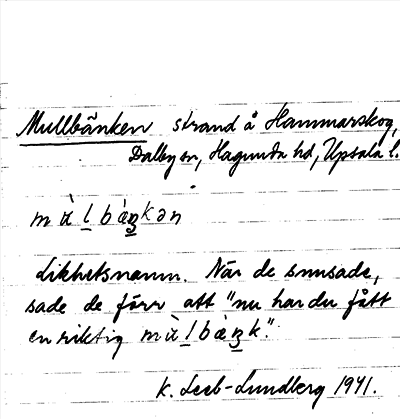 Mullbänken strand å Hammarskog,
Dalby sn, Hagunda hd, Upsala l.
mù̀l̲bàŋ̲kən
Likhetsnamn. När de snusade,
sade de förr att "nu har du fått
en riktig mù̀l̲bàŋ̲k".
K. Leeb-Lundberg 1941.